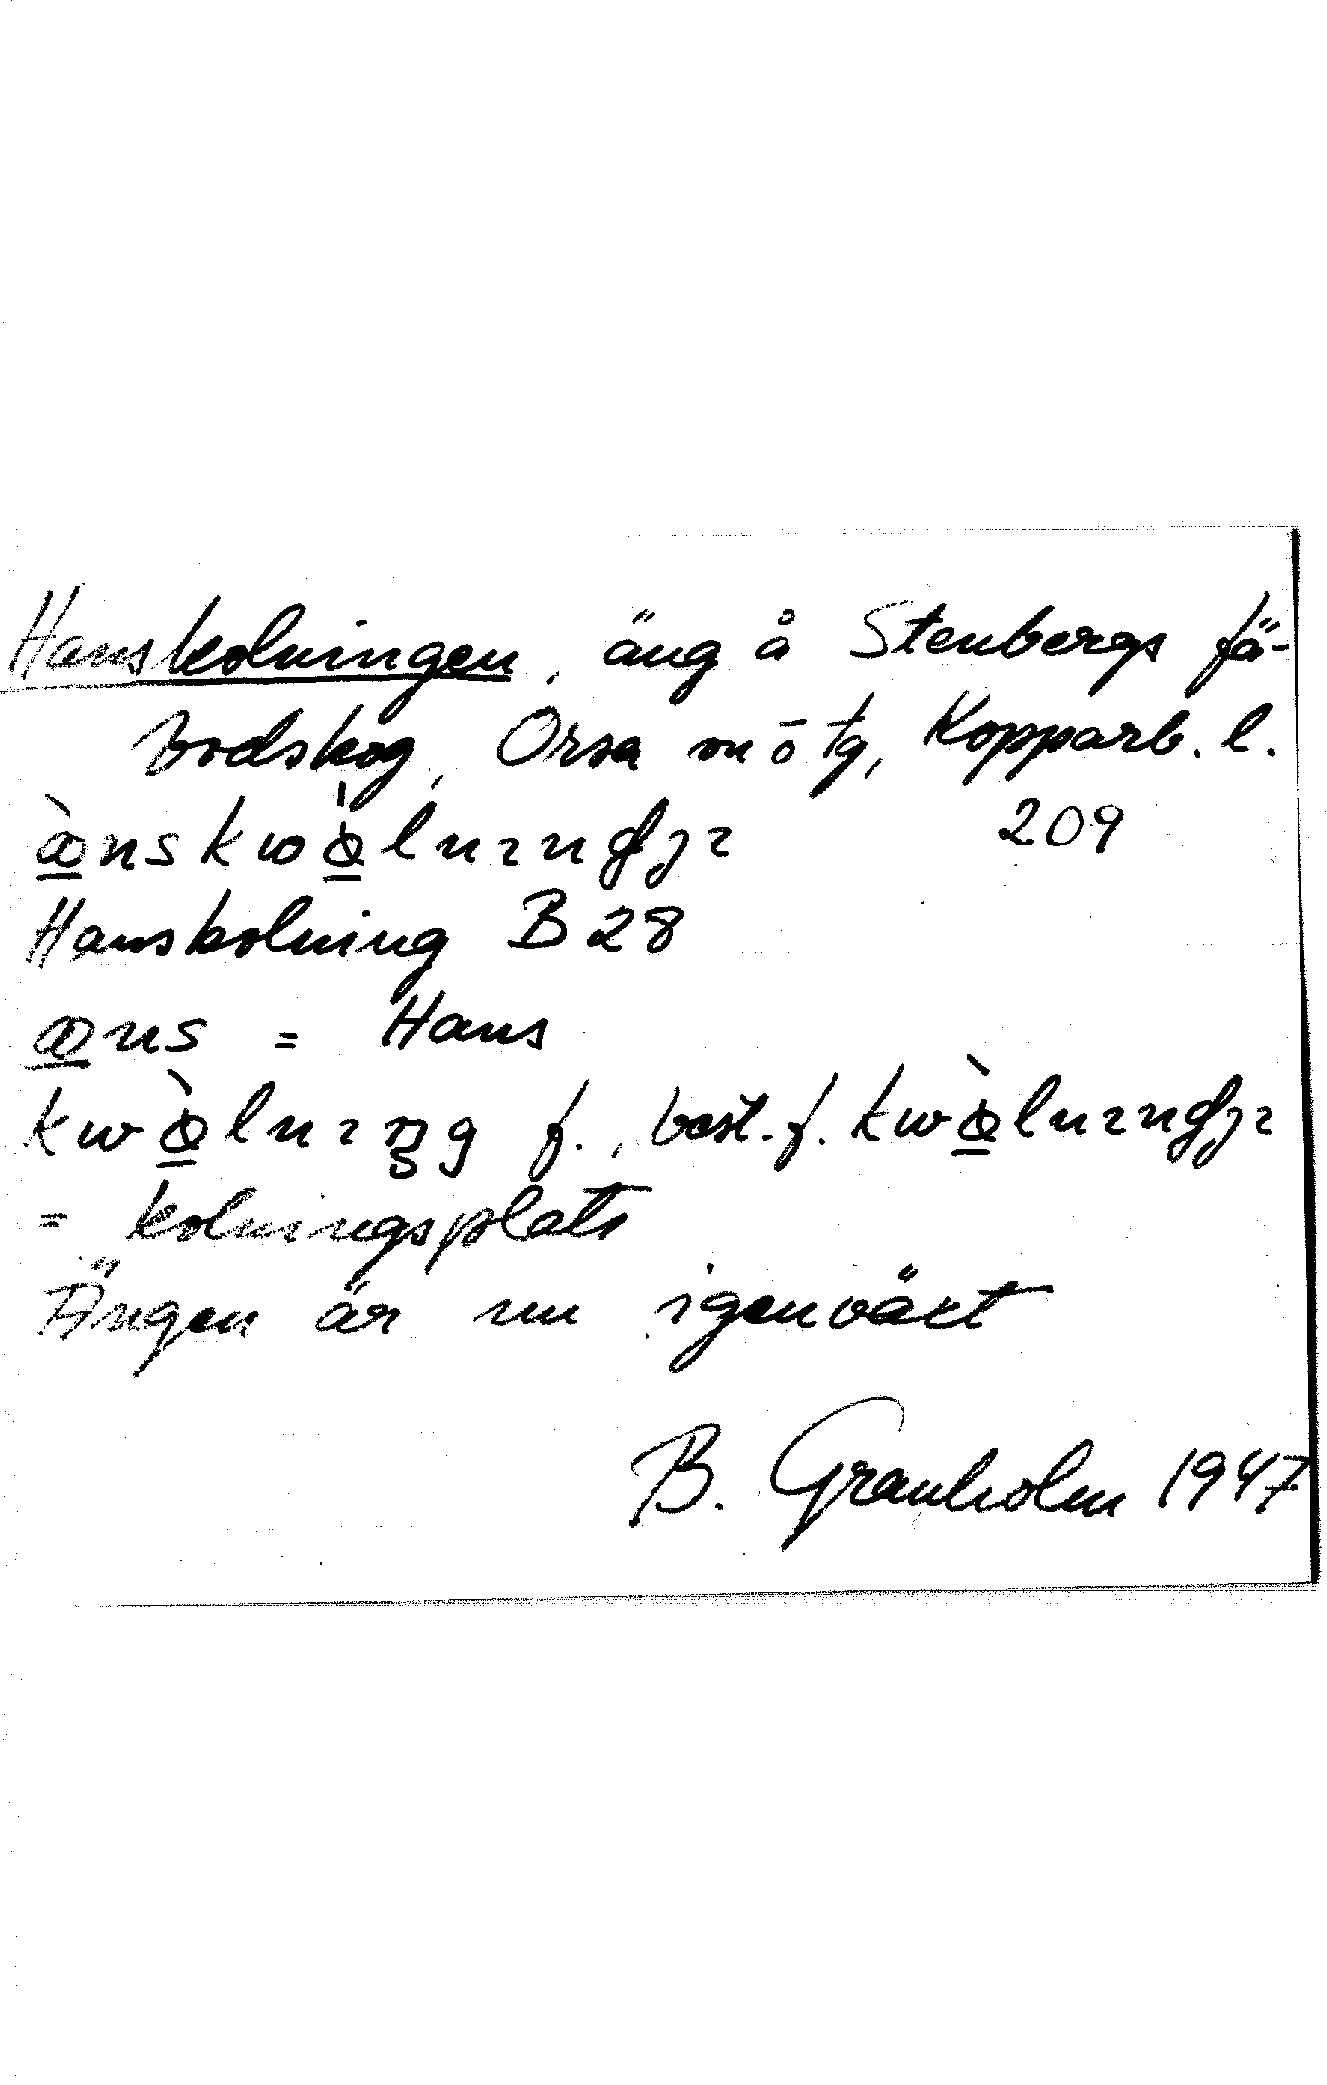 Hanskolningen, äng å Stenbergs fä-
bodskog, Orsa sn ö tg, Kopparb. l.
ὰnskωὸ̱lnιndȷι 209
Hanskolning B 28
æns = Hans
kωὸ̱lnιŋg f., best. f. kωὸ̱lnιndȷι
= kolningsplats
Ängen är nu igenväxt
B. Granholm 1947